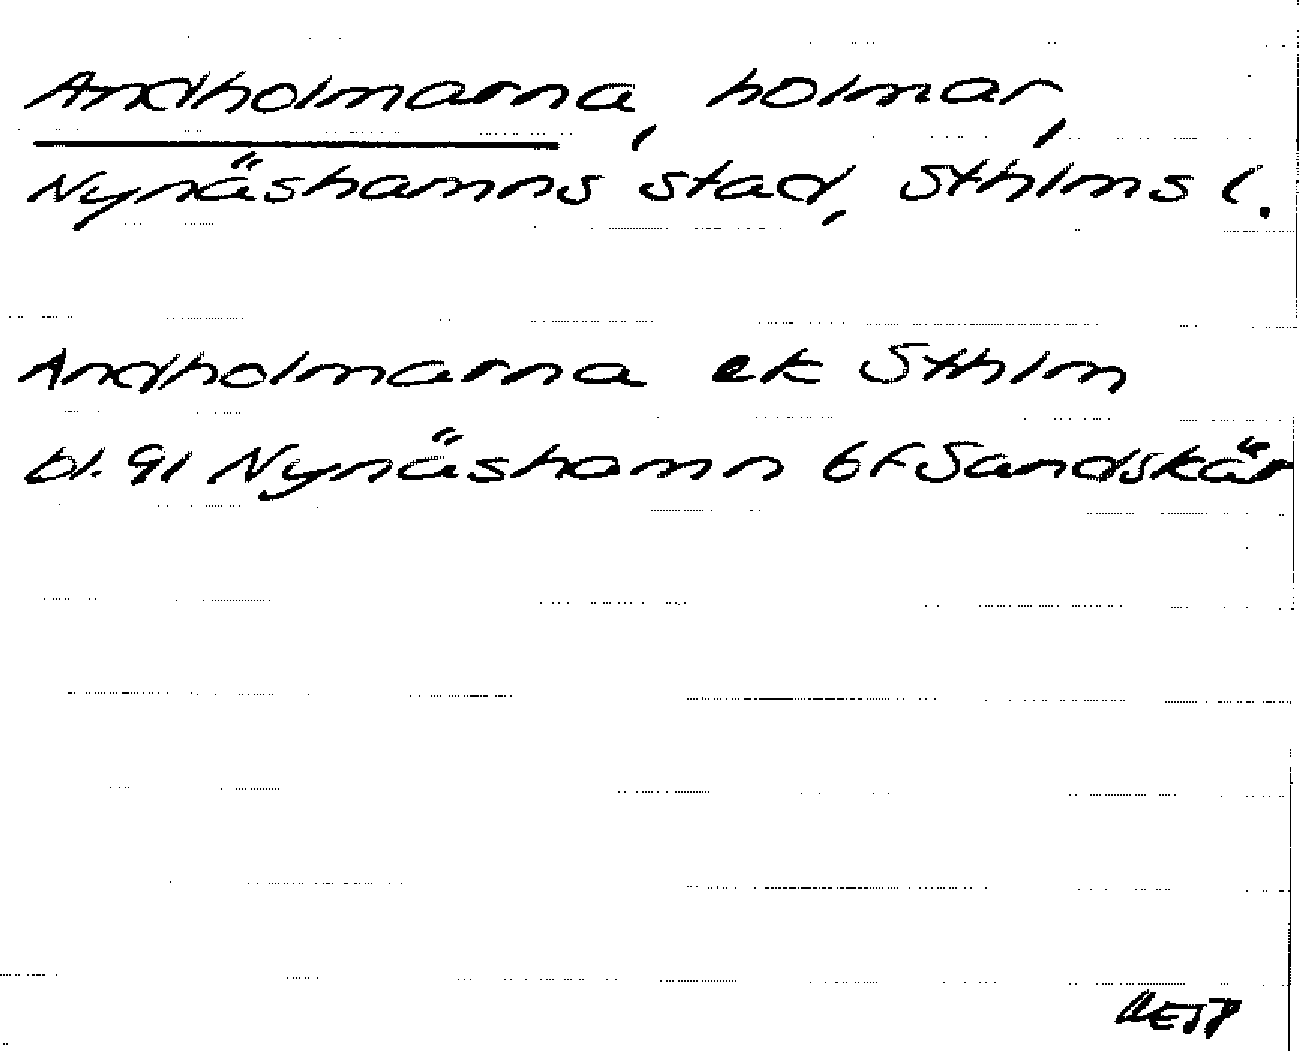 Andholmarna, holmar,
Nynäshamns stad, Sthlms l.
Andholmarna ek Sthlm
bl. 91 Nynäshamn 6f Sandskär